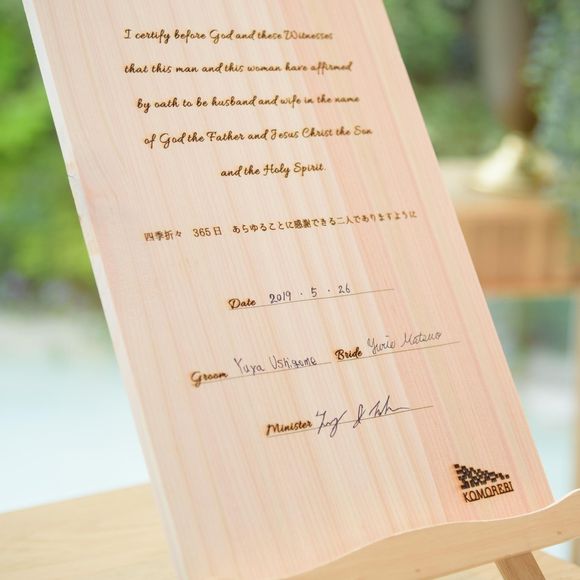 I certify before God and these Witnesses
that this man and this woman have affirmed
by oath to be husband and wife in the name
of God the Father and Jesus Christ the Son
and the Holy Spirit.
四季折々 365日 あらゆることに感謝できる二人でありますように
Date 2019.5.26
Groom Yuya Ushigome Bride Yurie Matsuo
Minister
KOMOREBI